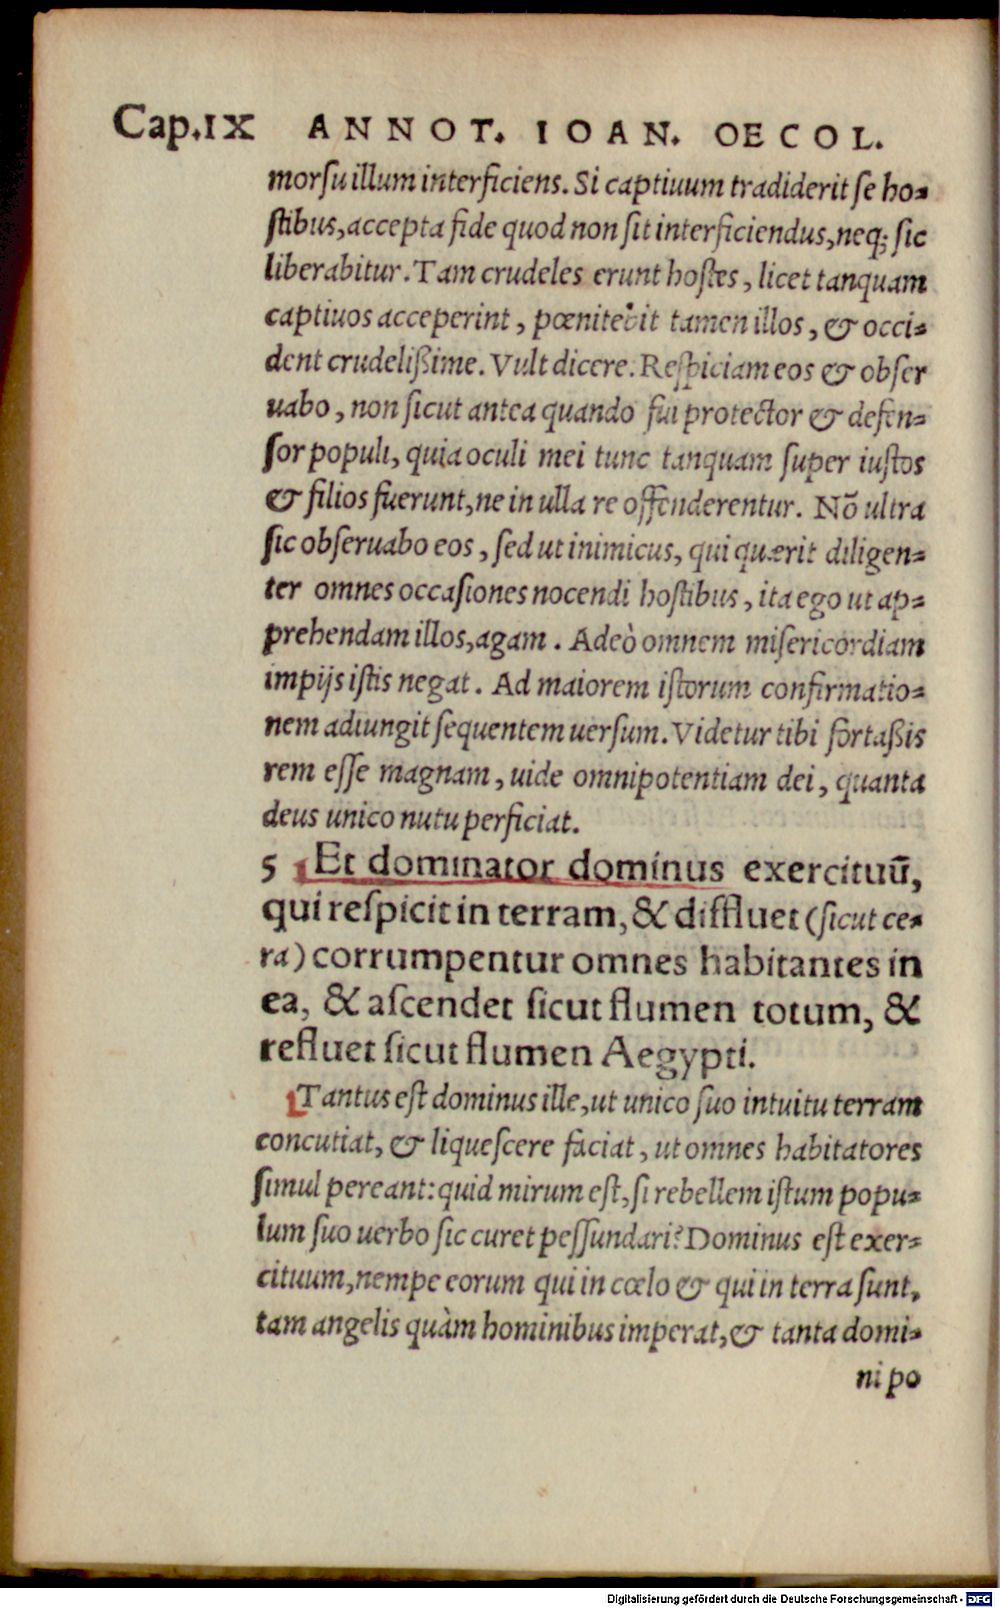 Cap.IX ANNOT. IOAN. OECOL.
morſu illum interficiens. Si captiuum tradiderit ſe ho-
ſtibus, accepta fide quod non ſit interficiendus, neq; ſic
liberabitur. Tam crudeles erunt hoſtes, licet tanquam
captiuos acceperint, pœnitebit tamen illos, & occi-
dent crudelißime. Vult dicere. Reſpiciam eos & obſer
uabo, non ſicut antea quando fui protector & defen-
ſor populi, quia oculi mei tunc tanquam ſuper iuſtos
& filios fuerunt, ne in ulla re offenderentur. Nõ ultra
ſic obſeruabo eos, ſed ut inimicus, qui quærit diligen-
ter omnes occaſiones nocendi hoſtibus, ita ego ut ap-
prehendam illos, agam. Adeò omnem miſericordiam
impijs iſtis negat. Ad maiorem iſtorum confirmatio-
nem adiungit ſequentem uerſum. Videtur tibi fortaßis
rem eſſe magnam, uide omnipotentiam dei, quanta
deus unico nutu perficiat.
5 Et dominator dominus exercituũ,
qui reſpicit in terram, & diffluet (ſicut ce-
ra) corrumpentur omnes habitantes in
ea, & aſcendet ſicut flumen totum, &
refluet ſicut flumen Aegypti.
Tantus eſt dominus ille, ut unico ſuo intuitu terram
concutiat, & liqueſcere faciat, ut omnes habitatores
ſimul pereant: quid mirum eſt, ſi rebellem iſtum popu-
lum ſuo uerbo ſic curet peſſundari? Dominus eſt exer-
cituum, nempe eorum qui in cœlo & qui in terra ſunt,
tam angelis quàm hominibus imperat, & tanta domi-
ni po
Digitalisierung gefördert durch die Deutsche Forschungsgemeinschaft - DFG